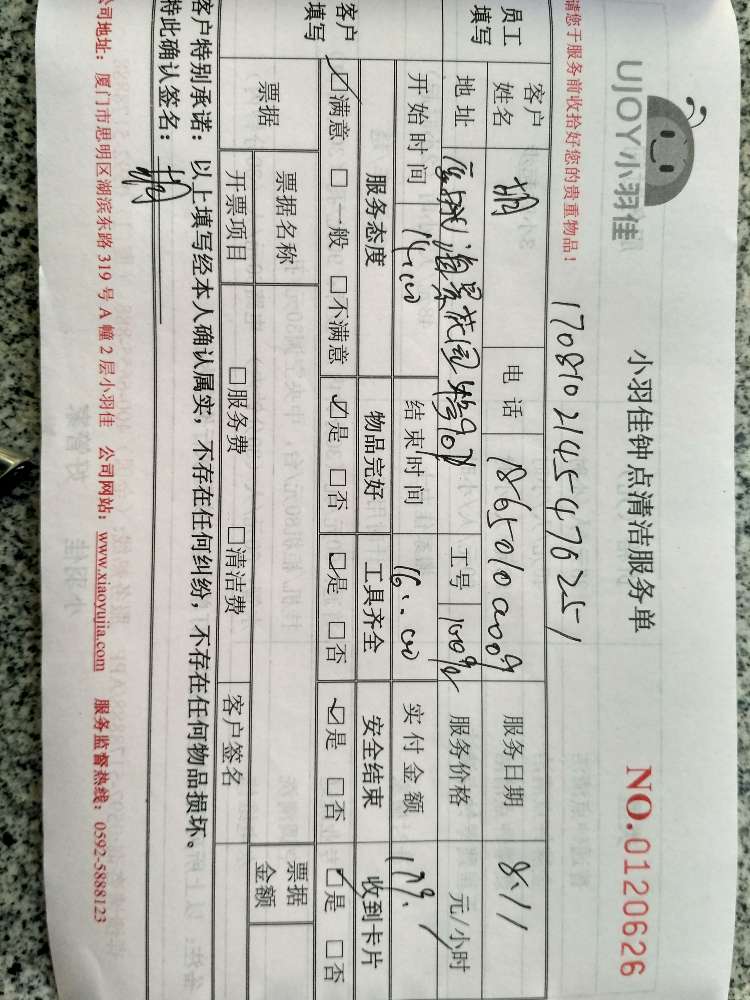 UJOY小羽佳
小羽佳钟点清洁服务单
NO.0120626
请您于服务前收拾好您的贵重物品！
1708102145476251
员工填写
客户姓名 胡 电话 服务日期 8.11
地址 海景花园 工号 服务价格 元/小时
开始时间 14:00 结束时间 16:00 实付金额
客户填写
服务态度 物品完好 工具齐全 安全结束 收到卡片
☑满意 □一般 □不满意 ☑是 □否 ☑是 □否 ☑是 □否 ☑是 □否
票据 票据名称 票据金额
开票项目 □服务费 □清洁费 客户签名
客户特别承诺：以上填写经本人确认属实，不存在任何纠纷，不存在任何物品损坏。
特此确认签名：胡
公司地址：厦门市思明区湖滨东路 319 号 A 幢 2 层小羽佳 公司网站：www.xiaoyujia.com 服务监督热线：0592-5888123